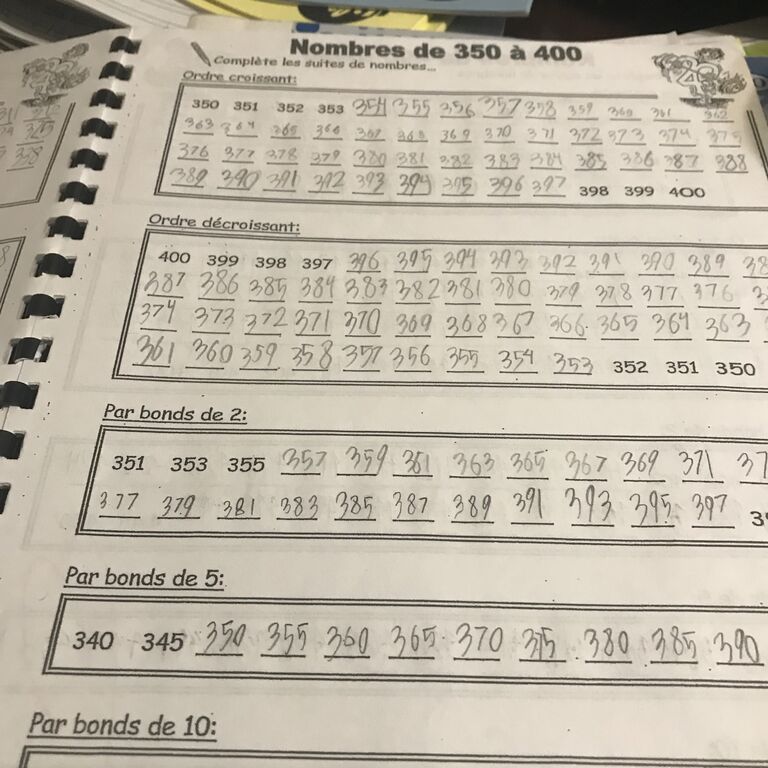 Nombres de 350 à 400
Complète les suites de nombres...
Ordre croissant:
350 351 352 353 354 355 356 357 358 359 360 361 362
363 364 365 366 367 368 369 370 371 372 373 374 375
376 377 378 379 380 381 382 383 384 385 386 387 388
389 390 391 392 393 394 395 396 397 398 399 400
Ordre décroissant:
400 399 398 397 396 395 394 393 392 391 390 389
387 386 385 384 383 382 381 380 379 378 377 376
374 373 372 371 370 369 368 367 366 365 364 363
361 360 359 358 357 356 355 354 353 352 351 350
Par bonds de 2:
351 353 355 357 359 361 363 365 367 369 371
377 379 381 383 385 387 389 391 393 395 397
Par bonds de 5:
340 345 350 355 360 365 370 375 380 385 390
Par bonds de 10: